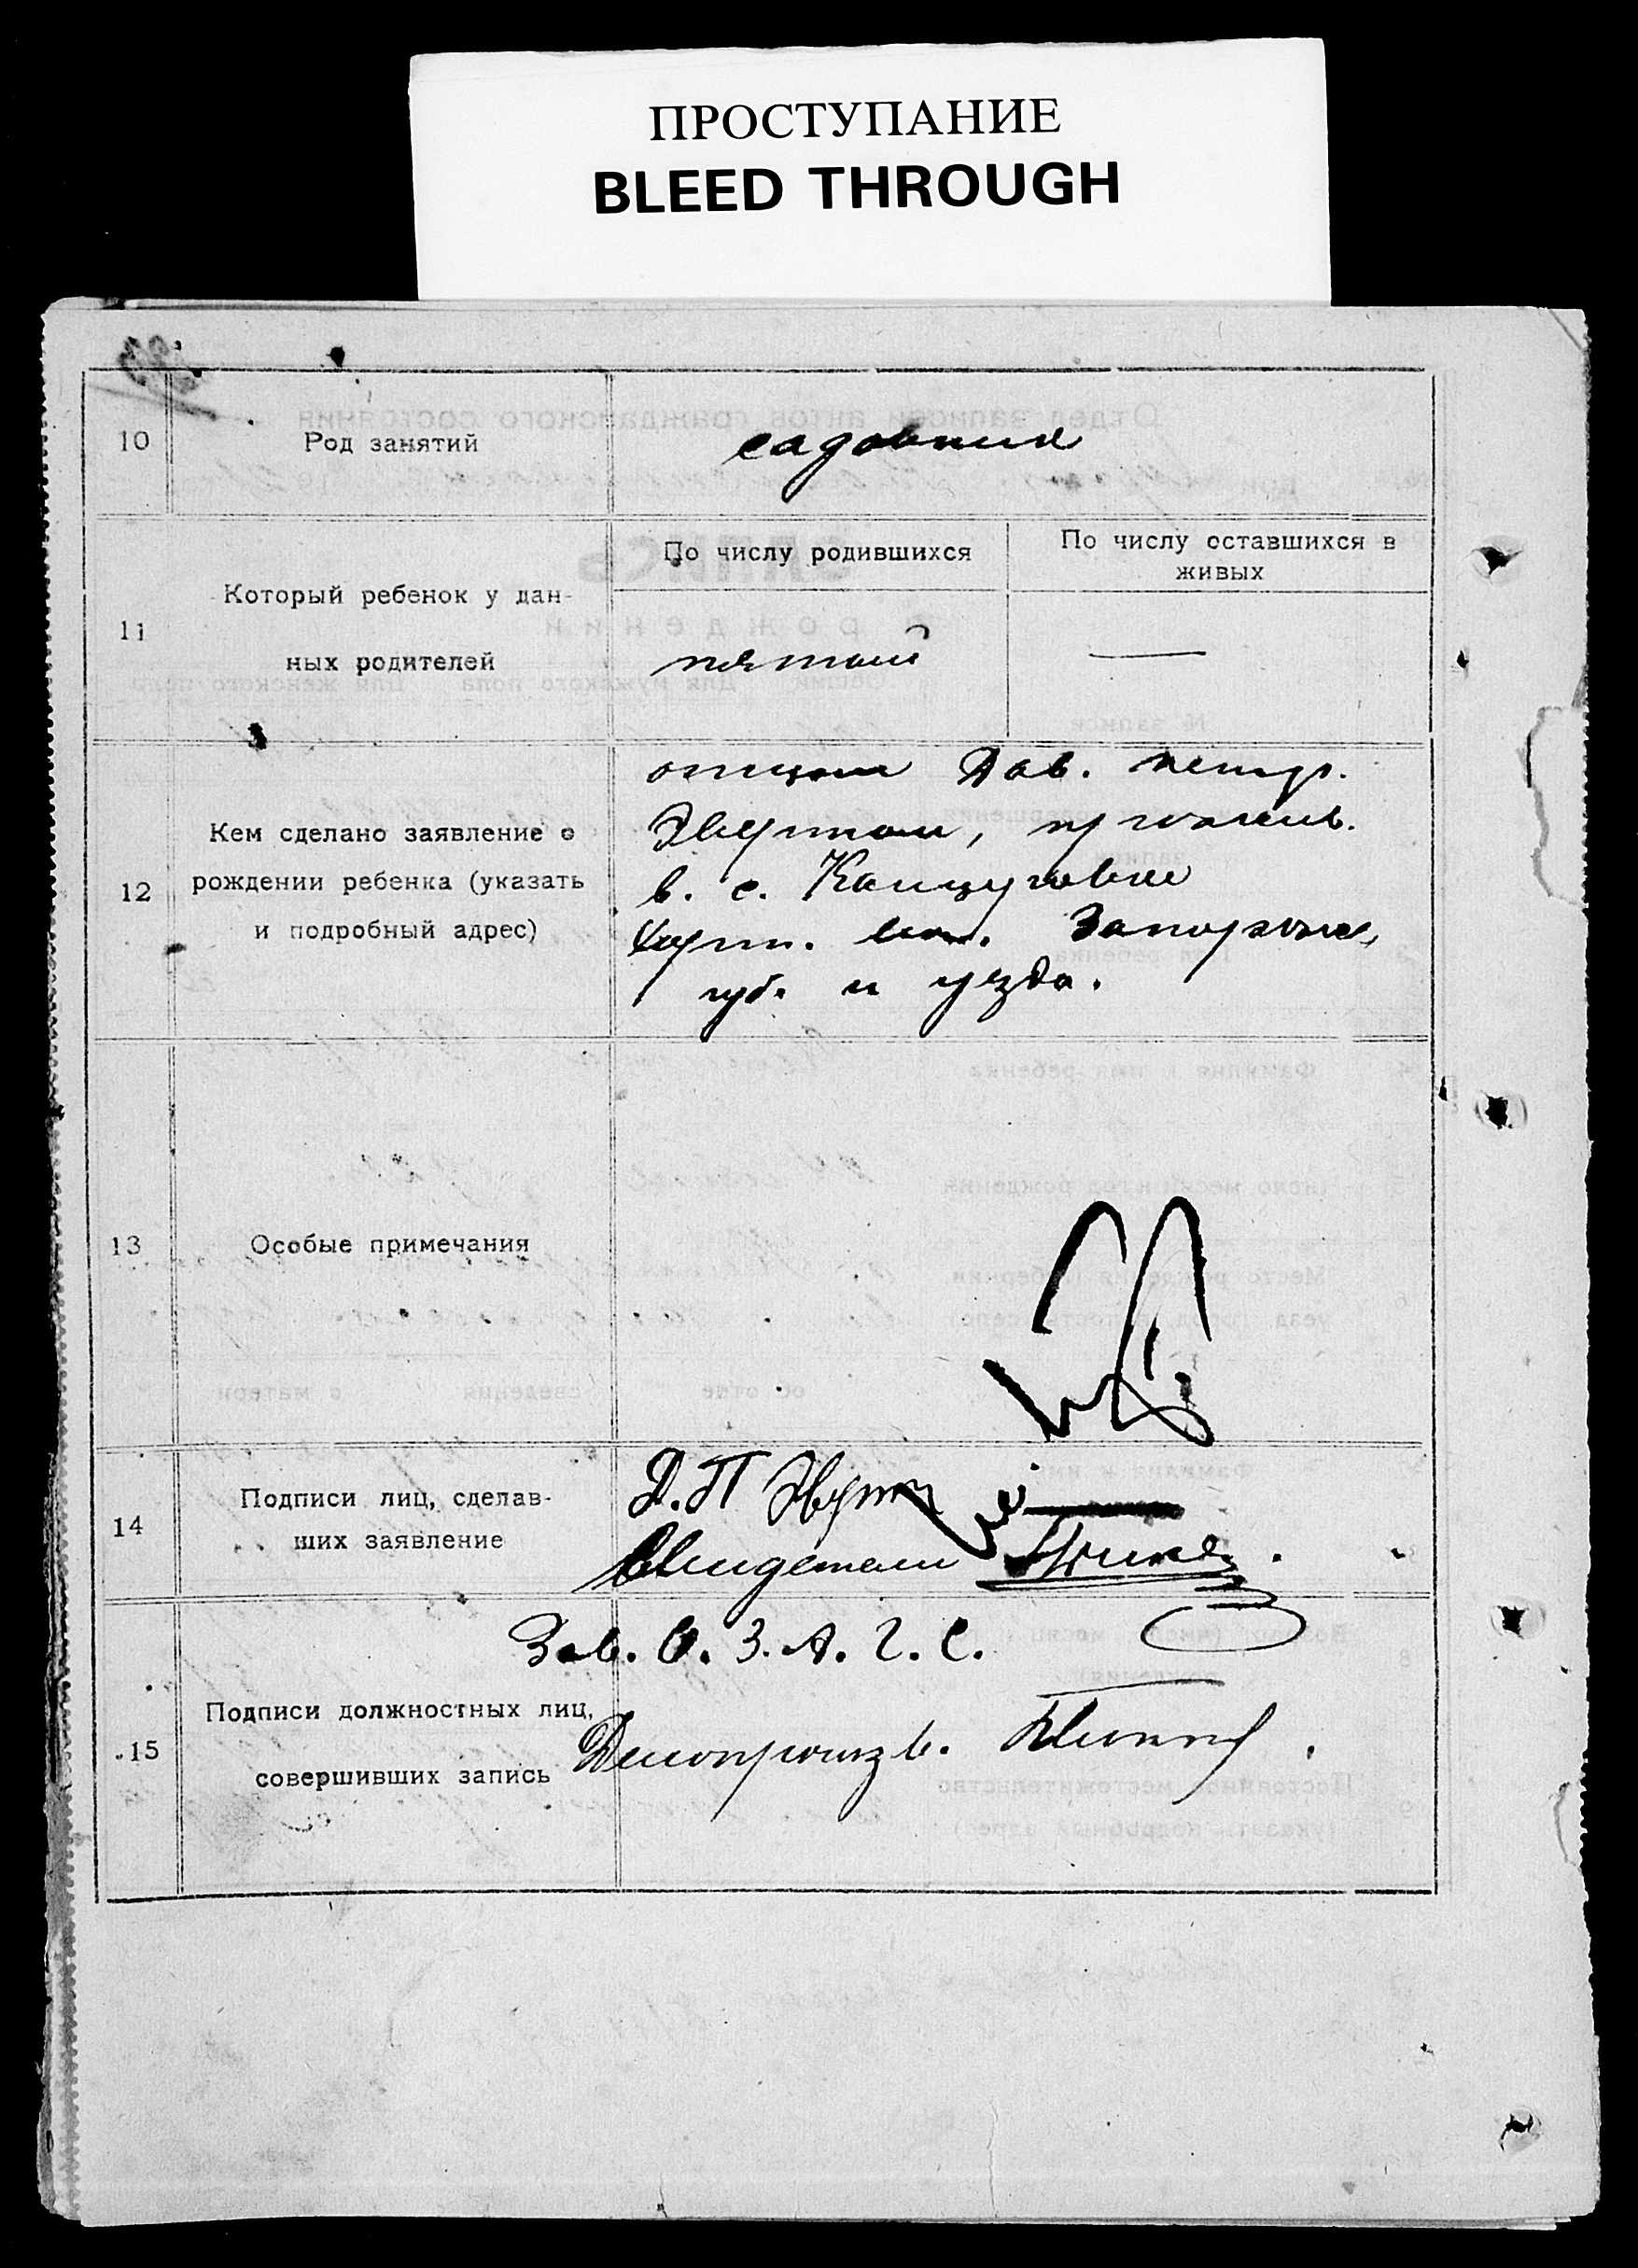 ПРОСТУПАНИЕ
BLEED THROUGH
10
Род занятий
садовник
11
Который ребенок у дан-
ных родителей
По числу родившихся
По числу оставшихся в
живых
пятый
—
12
Кем сделано заявление о
рождении ребенка (указать
и подробный адрес)
отцом Дав. Петр.
Эвертом, прожив.
в. с. Канцуровке
Хорт. вол. Запорожс,
губ. и уезда.
13
Особые примечания
14
Подписи лиц, сделав-
ших заявление
Д. П Эверт
Свидетели
15
Подписи должностных лиц,
совершивших запись
Зав. О. З. А. Г. С.
Делопроизв.